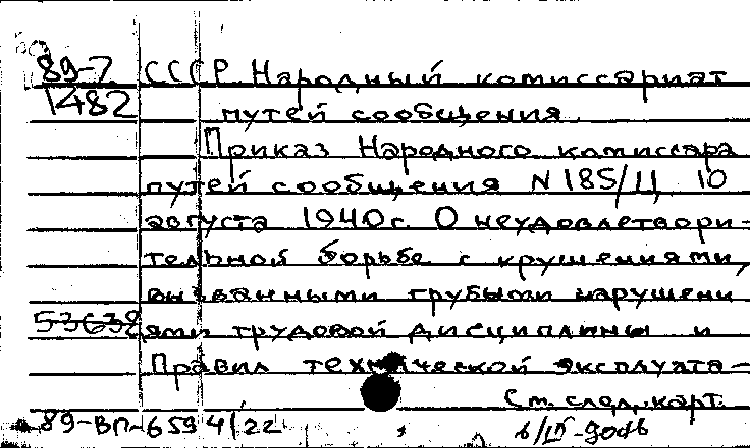 89-7 СССР Народный комиссариат
1482 путей сообщения.
Приказ Народного комиссара
путей сообщения N 185/Ц 10
августа 1940г. О неудовлетвори-
тельной борьбе с крушениями,
вызванными грубыми нарушени
53638 ями трудовой дисциплины и
Правил технической эксплуата-
См. след. карт.
89-ВП-6594/22